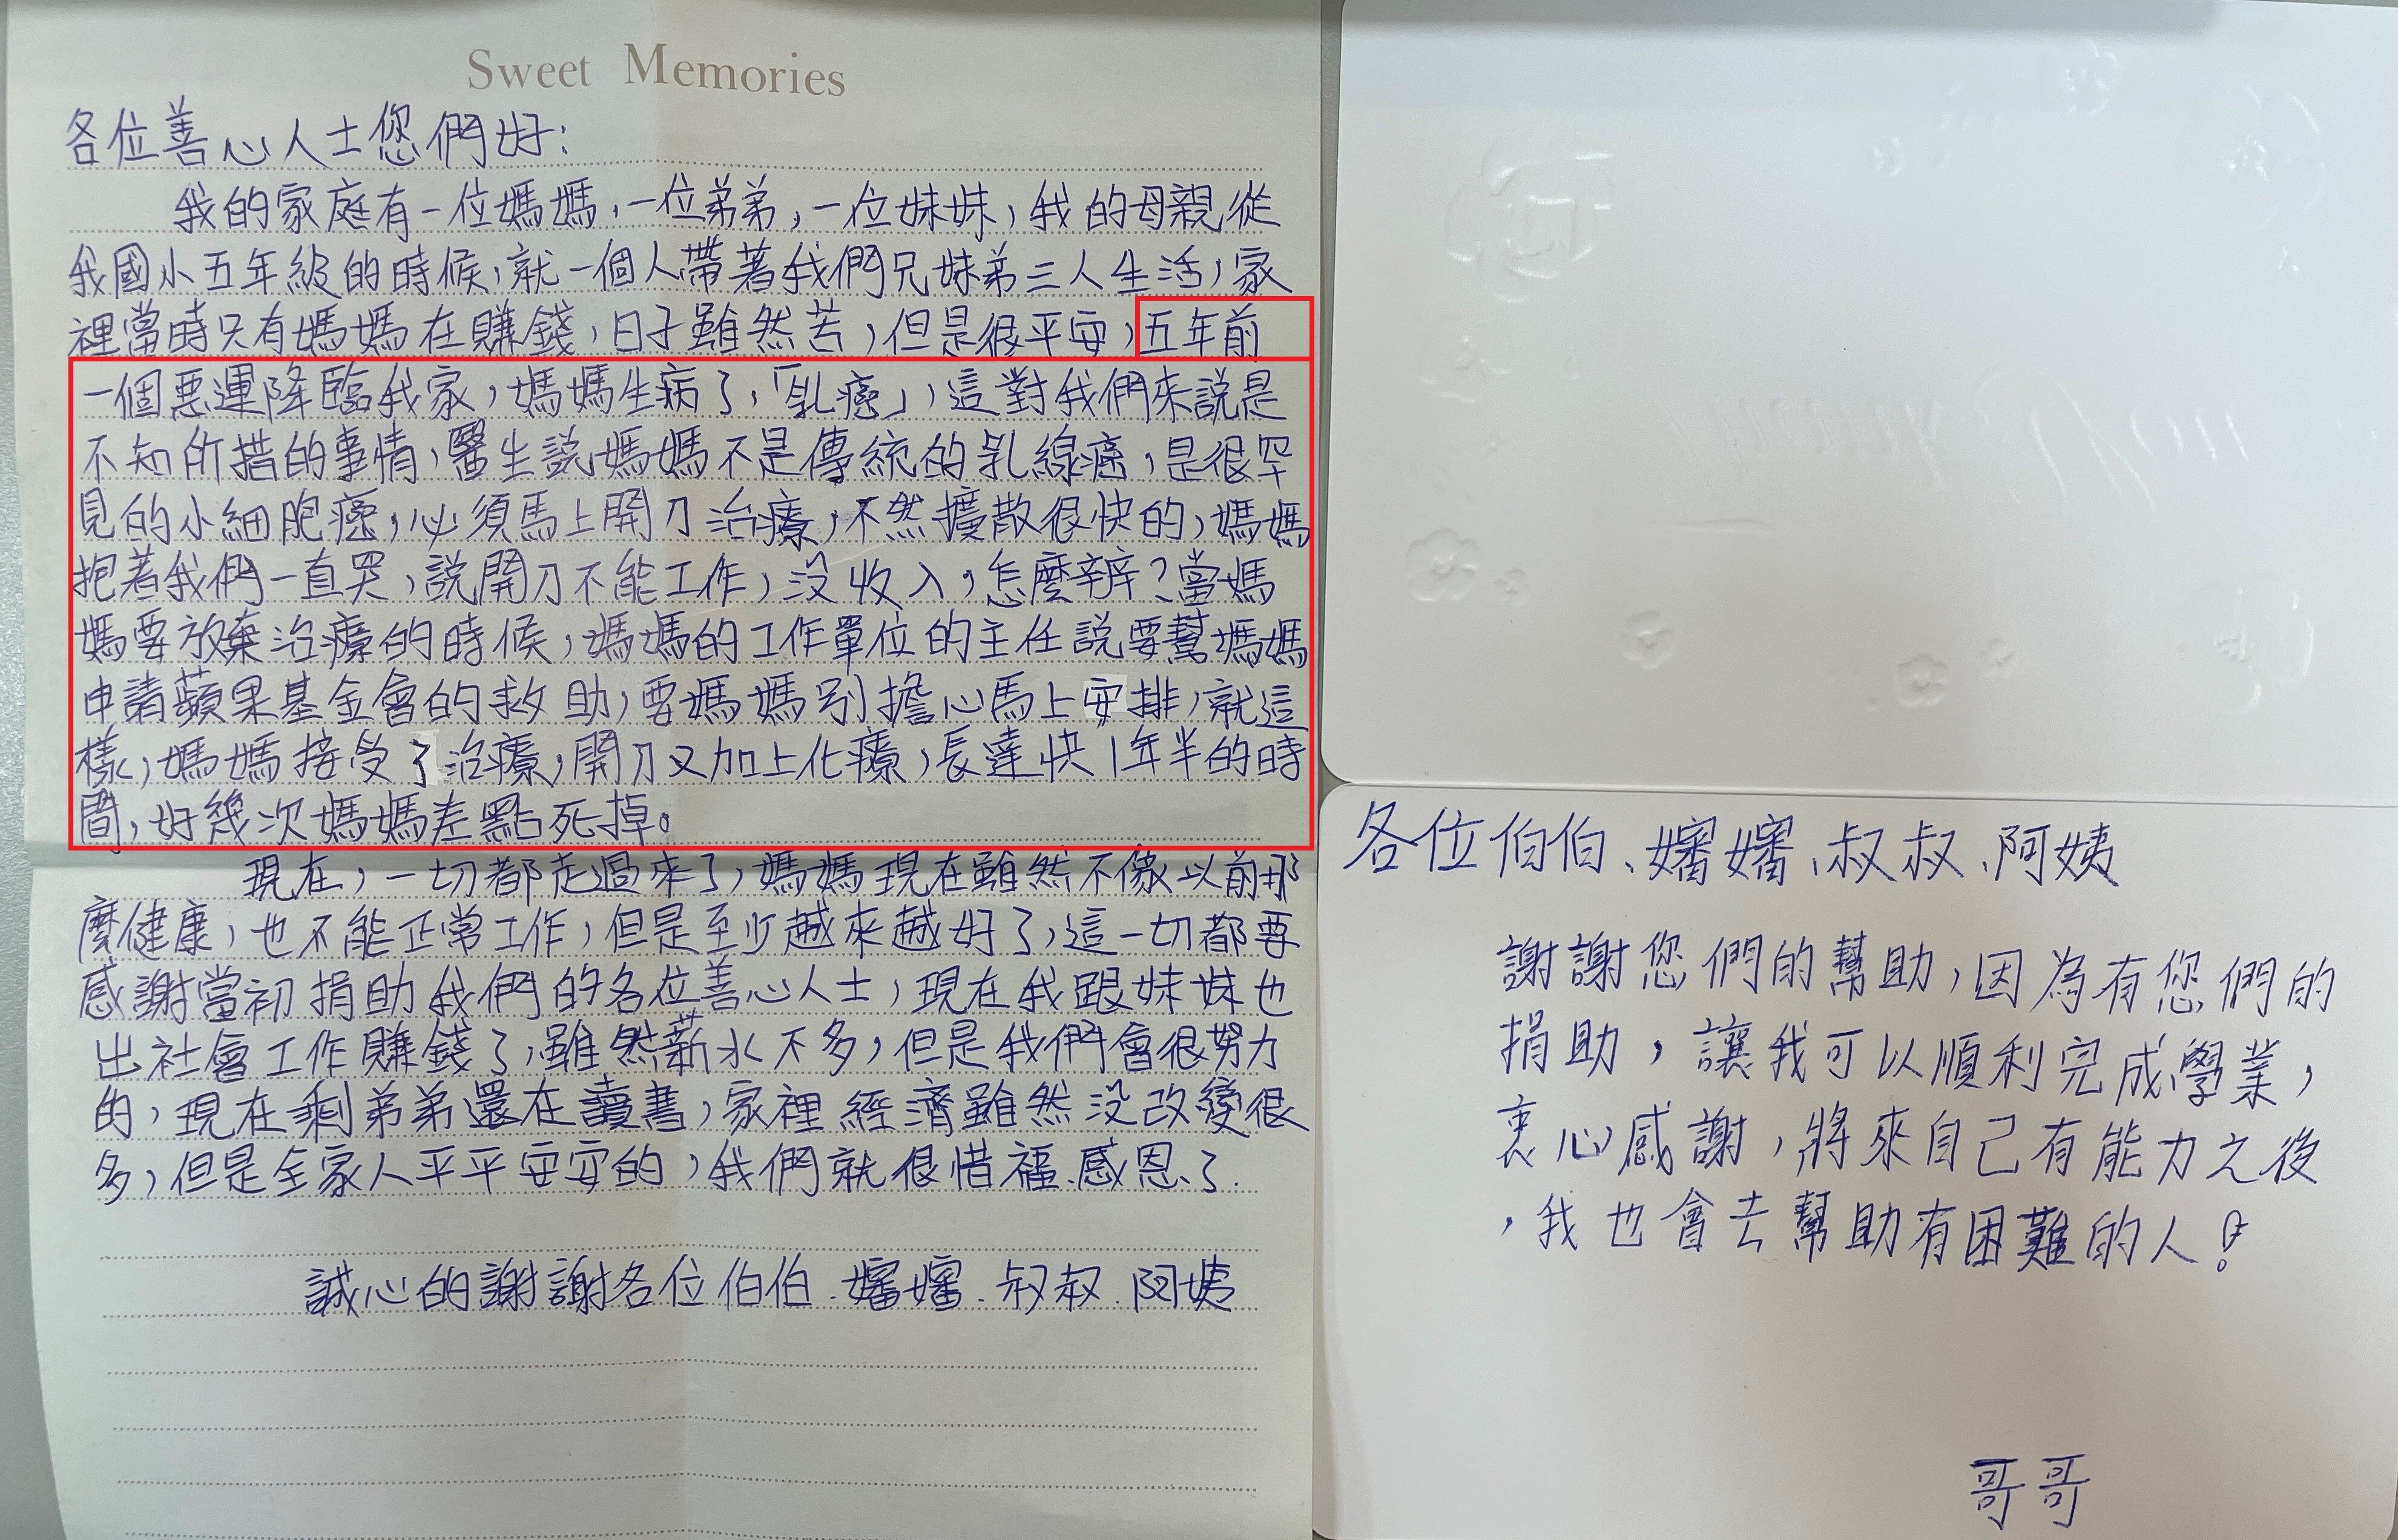 Sweet Memories
各位善心人士您們好：
我的家庭有一位媽媽，一位弟弟，一位妹妹，我的母親從
我國小五年級的時候，就一個人帶著我們兄妹弟三人生活，家
裡當時只有媽媽在賺錢，日子雖然苦，但是很平安，五年前
一個惡運降臨我家，媽媽生病了，「乳癌」，這對我們來說是
不知所措的事情，醫生說媽媽不是傳統的乳線癌，是很罕
見的小細胞癌，必須馬上開刀治療，不然擴散很快的，媽媽
抱著我們一直哭，說開刀不能工作，沒收入，怎麼辨？當媽
媽要放棄治療的時候，媽媽的工作單位的主任說要幫媽媽
申請蘋果基金會的救助，要媽媽別擔心馬上安排，就這
樣，媽媽接受了治療，開刀又加上化療，長達快1年半的時
間，好幾次媽媽差點死掉。
現在，一切都走過來了，媽媽現在雖然不像以前那
麼健康，也不能正常工作，但是至少越來越好了，這一切都要
感謝當初捐助我們的各位善心人士，現在我跟妹妹也
出社會工作賺錢了，雖然薪水不多，但是我們會很努力
的，現在剩弟弟還在讀書，家裡經濟雖然沒改變很
多，但是全家人平平安安的，我們就很惜福、感恩了.
誠心的謝謝各位伯伯、嬸嬸、叔叔、阿姨
各位伯伯、嬸嬸、叔叔、阿姨
謝謝您們的幫助，因為有您們的
捐助，讓我可以順利完成學業，
衷心感謝，將來自己有能力之後
，我也會去幫助有困難的人！
哥哥